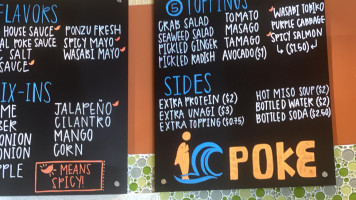 FLAVORS
HOUSE SAUCE
POKE SAUCE
SALT
SAUCE
PONZU FRESH
SPICY MAYO
WASABI MAYO
MIX-INS
ONION
ONION
JALAPEÑO
CILANTRO
MANGO
CORN
= MEANS
SPICY!
5 TOPPINGS
CRAB SALAD
SEAWEED SALAD
PICKLED GINGER
PICKLED RADISH
TOMATO
MASAGO
TAMAGO
AVOCADO ($1)
WASABI TOBIKO
PURPLE CABBAGE
SPICY SALMON
↳ ($1.50)
SIDES
EXTRA PROTEIN ($2)
EXTRA UNAGI ($3)
EXTRA TOPPING ($0.75)
HOT MISO SOUP ($2)
BOTTLED WATER ($2)
BOTTLED SODA ($2.50)
POKE